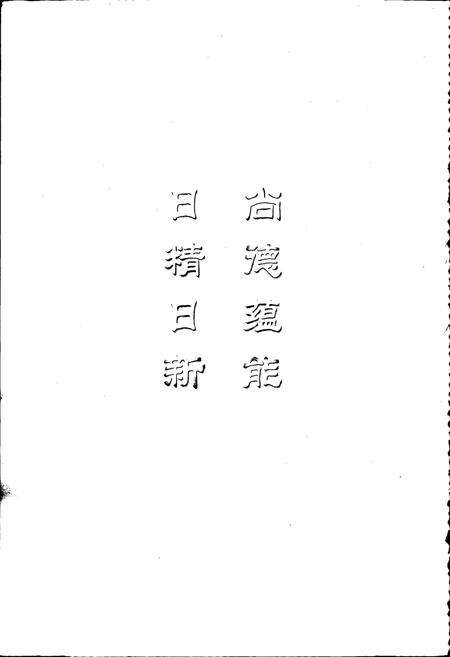 尚德蕴能
日精日新